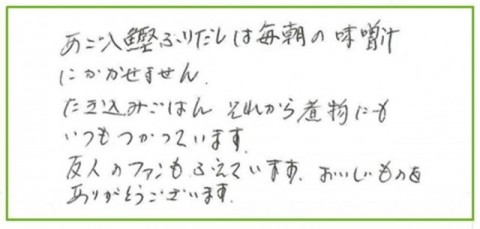 あご入鰹ふりだしは毎朝の味噌汁
にかかせません.
たき込みごはん それから煮物にも
いつもつかっています.
友人のファンもふえています. おいしいものを
ありがとうございます.